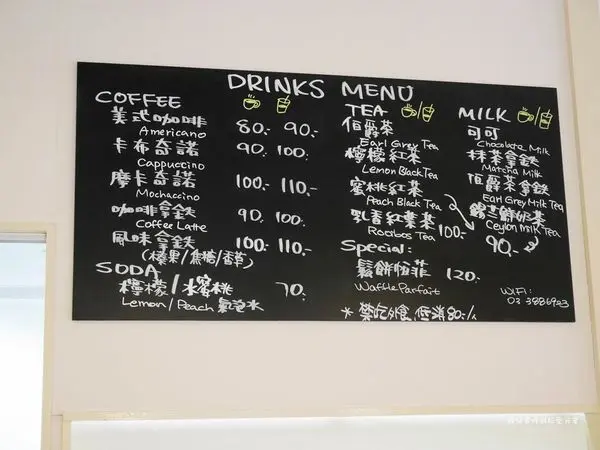 DRINKS MENU
COFFEE
美式咖啡 80.- 90.-
Americano
卡布奇諾 90. 100.
Cappuccino
摩卡奇諾 100.- 110.-
Mochaccino
咖啡拿鉄 90. 100
Coffee Latte
風味拿鉄 100.- 110.-
(榛果/焦糖/香草)
SODA
檸檬/水蜜桃 70.
Lemon/Peach 氣泡水
TEA
伯爵茶
Earl Grey Tea
檸檬紅茶
Lemon Black Tea
蜜桃紅茶
Peach Black Tea
乳香紅葉茶 100.-
Rooibos Tea
Special:
鬆餅帕菲 120.-
Waffle Parfait
* 禁吃外食, 低消80.-/人
MILK
可可
Chocolate Milk
抹茶拿鉄
Matcha Milk
伯爵茶拿鉄
Earl Grey Milk Tea
錫兰鮮奶茶
Ceylon Milk Tea
90.-
WIFI:
03 3886923